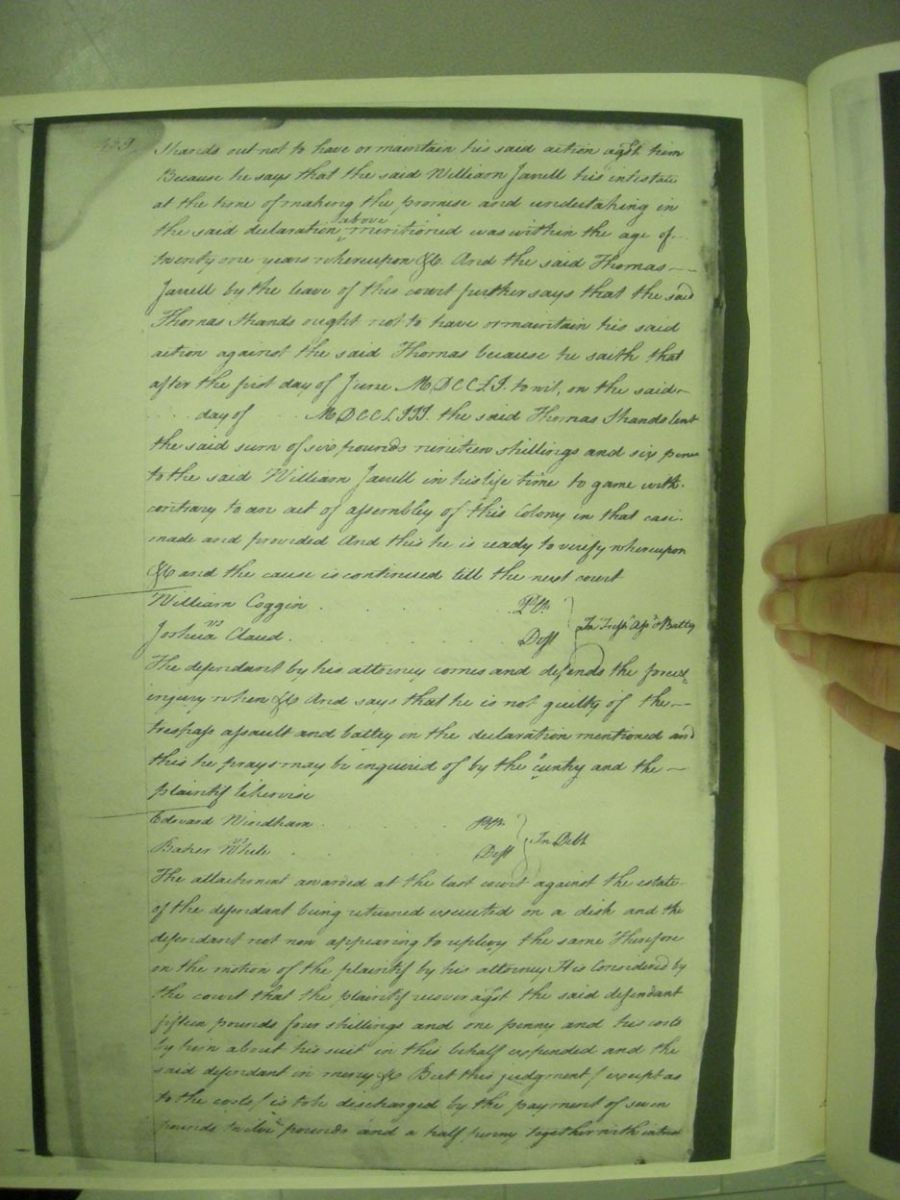 Shands out not to have or maintain his said action agst him
Because he says that the said William Jarrell his intestate
at the time of making the promise and undertaking in
the said declaration above mentioned was within the age of
twenty one years whereupon &c. And the said Thomas
Jarrell by the leave of this court further says that the said
Thomas Shands ought not to have or maintain his said
action against the said Thomas because he saith that
after the first day of June MDCCLI. to wit, on the said
day of MDCCLIII. the said Thomas Shands lent
the said sum of six pounds nineteen shillings and six pence
to the said William Jarrell in his life time to game with
contrary to an act of assembley of this Colony in that case
made and provided And this he is ready to verify whereupon
&c and the cause is continued till the next court
William Coggin Plt.
vs In Tresps Asst & Battry
Joshua Claud. Deft
The defendant by his attorney comes and defends the force &
injury when &c And says that he is not guilty of the
trespass assault and battey in the declaration mentioned and
this he prays may be inquired of by the cuntry and the
plaintif likewise
Edward Windham Plt.
vs In Debt
Baker White Deft
The attachment awarded at the last court against the estate
of the defendant being returned executed on a desk and the
defendant not now appearing to replevy the same Therefore
on the motion of the plaintif by his attorney It is Considered by
the court that the plaintif recover agst the said defendant
fifteen pounds four shillings and one penny and his costs
by him about his suit in this behalf expended and the
said defendant in mercy &c But this judgment (except as
to the costs) is to be discharged by the payment of seven
pounds twelve pounds and a half penny together with interest